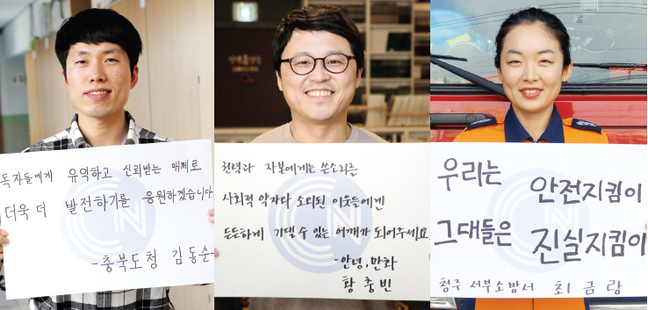 독자들에게 유익하고 신뢰받는 매체로
더욱 더 발전하기를 응원하겠습니다
-충북도청 김동순-
권력과 자본에게는 쓴소리를
사회적 약자나 소외된 이웃들에겐
든든하게 기댈수 있는 어깨가 되어주세요
-안녕,만화
황충빈
우리는 안전지킴이
그대들은 진실지킴이
청주 서부소방서 최금랑
CN
CN
CN